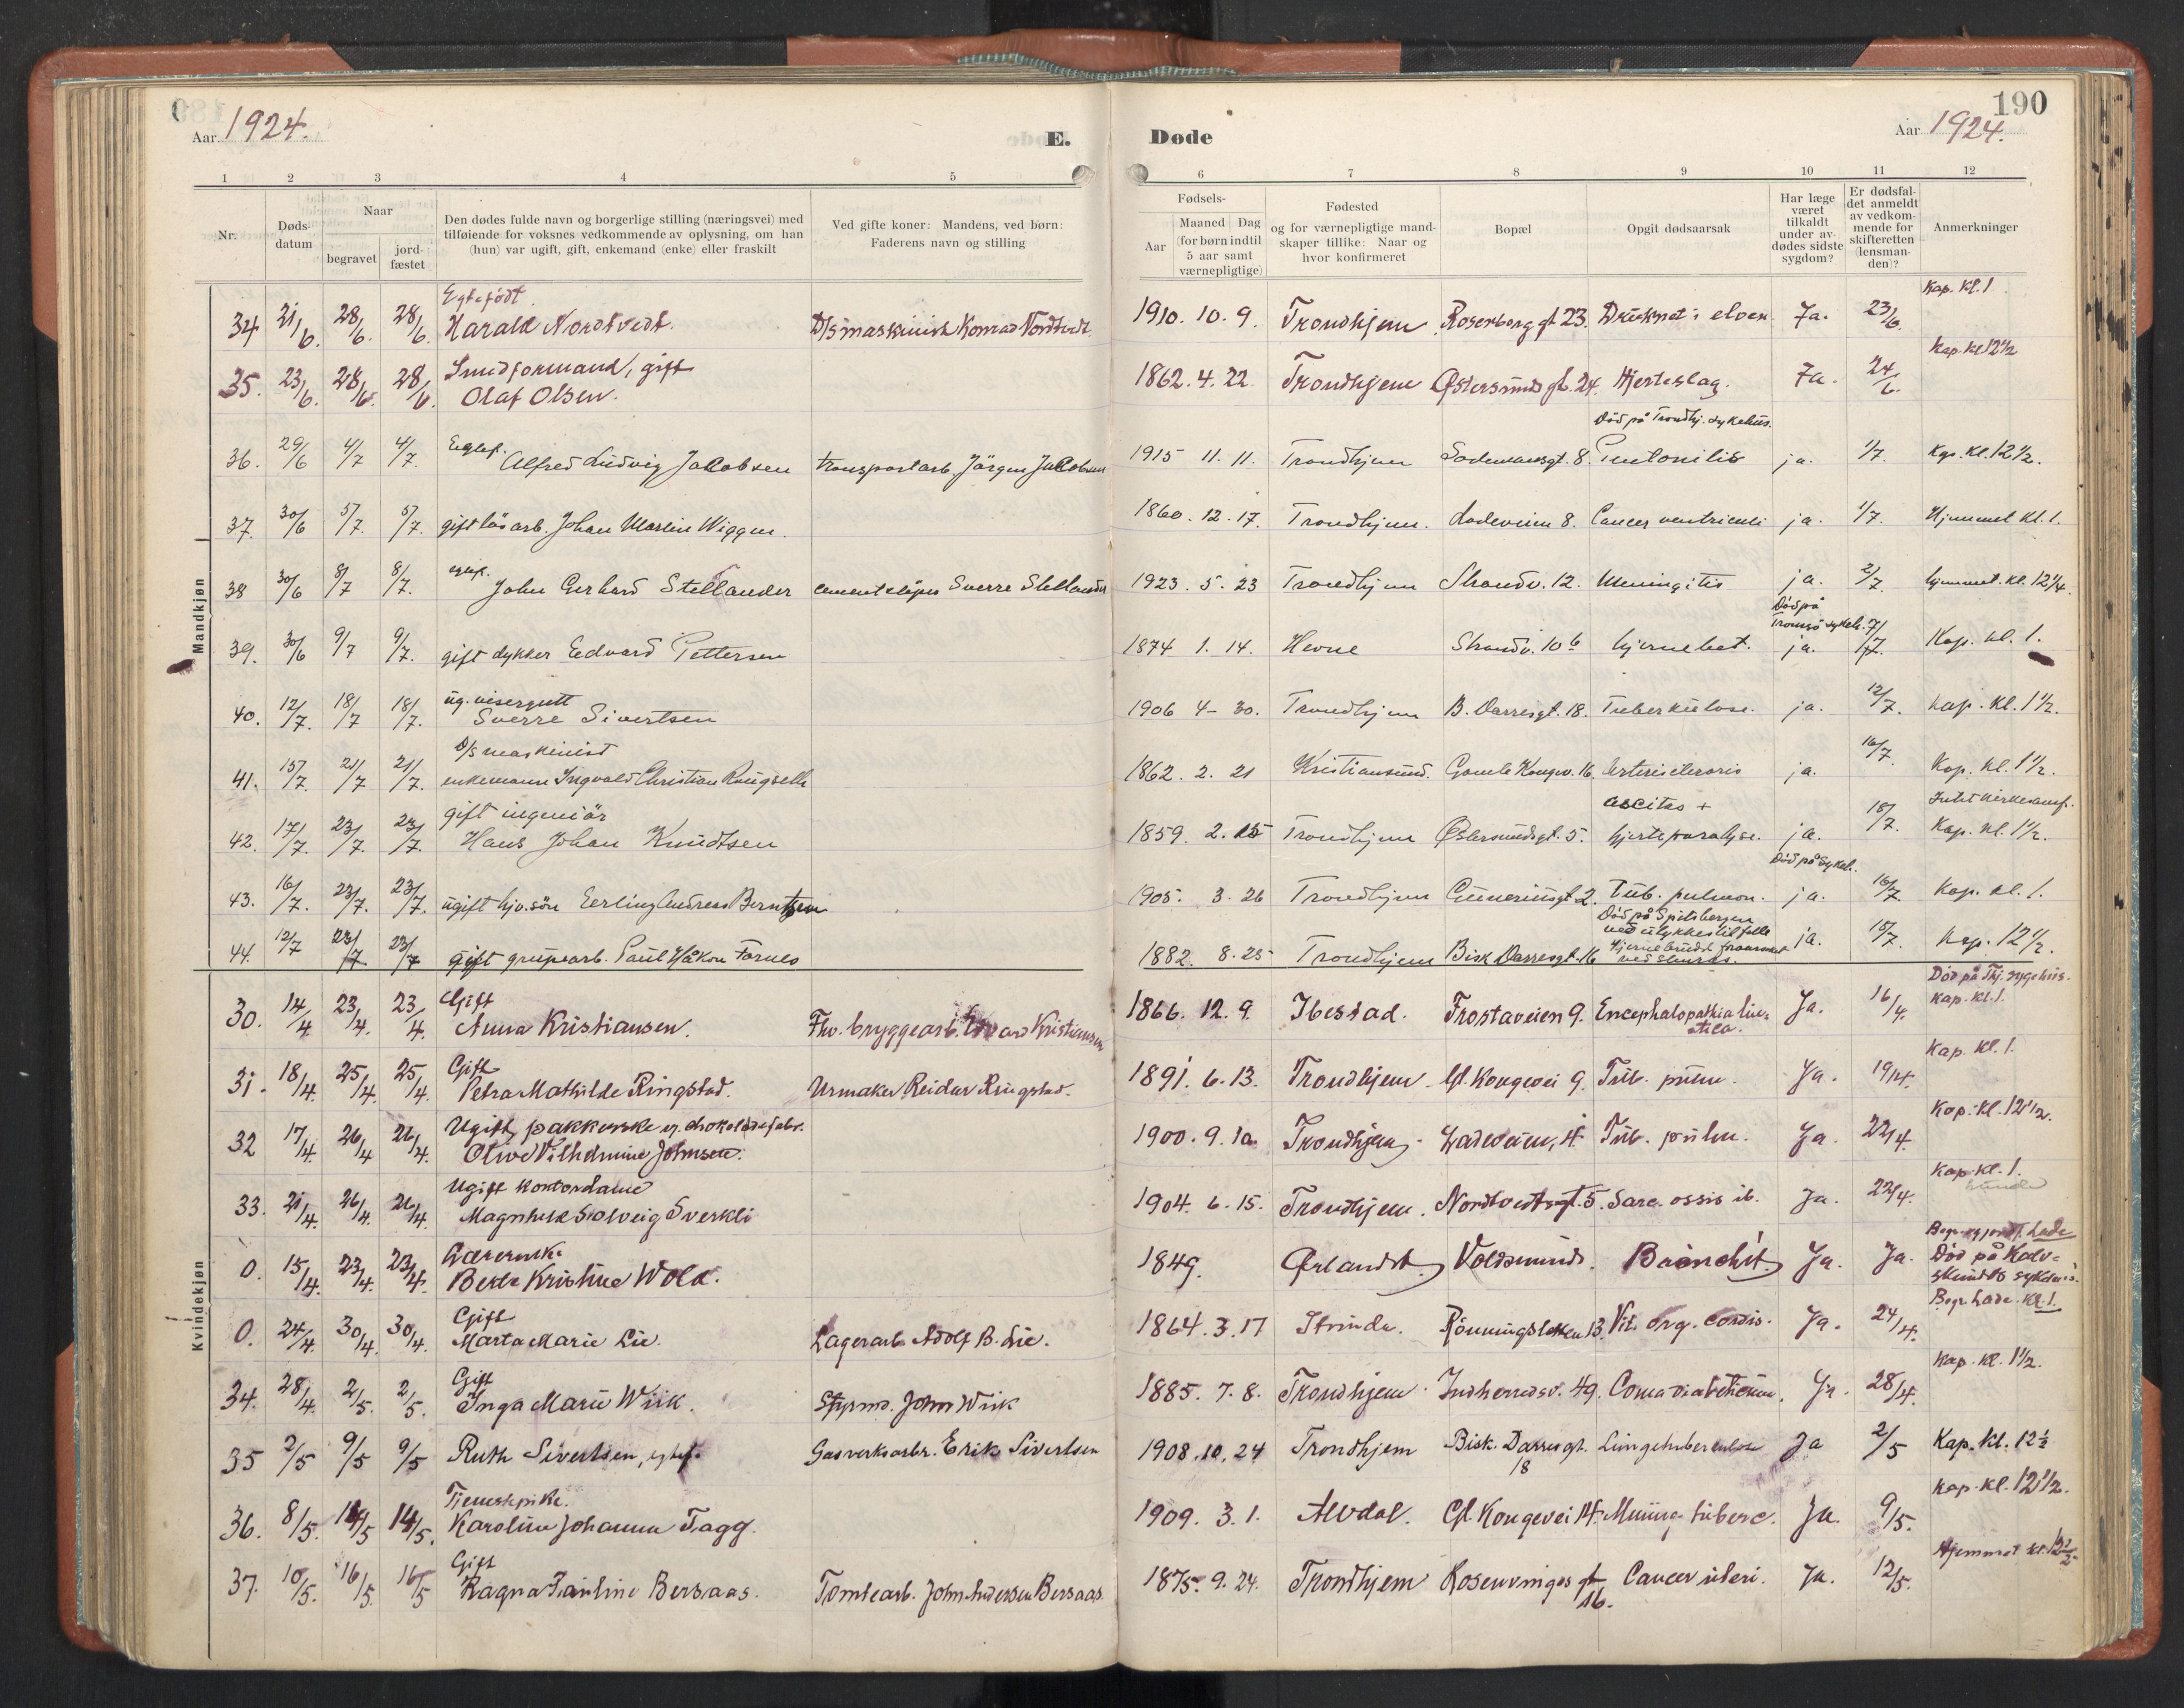 190
Aar 1924.
E.
Døde
Aar 1924.
1 2 3 4 5 6 7 8 9 10 11 12
Nr.
Døds-
datum
Naar
begravet
jord-
fæstet
Den dødes fulde navn og borgerlige stilling (næringsvei) med
tilføiende for voksnes vedkommende av oplysning, om han
(hun) var ugift, gift, enkemand (enke) eller fraskilt
Ved gifte koner: Mandens, ved børn:
Faderens navn og stilling
Fødsels-
Aar
Maaned Dag
(for børn indtil
5 aar samt
værnepligtige)
Fødested
og for værnepligtige mand-
skaper tillike: Naar og
hvor konfirmeret
Bopæl
Opgit dødsaarsak
Har læge
været
tilkaldt
under av-
dødes sidste
sygdom?
Er dødsfal-
det anmeldt
av vedkom-
mende for
skifteretten
(lensman-
den)?
Anmerkninger
Mandkjøn
Egtefødt Kap. Kl. 1
34 21/6. 28/6. 28/6. Harald Nordtvedt. D/s maskinist Konrad Nordtvedt 1910. 10. 9. Trondhjem Rosenborg gt 23. Druknet i elven Ja. 23/6.
Smedformand, gift Kap. Kl 12 1/2
35. 23/6. 28/6. 28/6. Olaf Olsen. 1862. 4. 22. Trondhjem Østersunds gt. 24. Hjerteslag. Ja. 24/6.
Død på Trondhj. sykehus.
36. 29/6 4/7 4/7. Egtef. Alfred Ludvig Jakobsen transportarb. Jörgen Jakobsen 1915 11. 11. Trondhjem Sodemansgt. 8. ja. 1/7. Kap. Kl. 12 1/2.
37. 30/6 5/7. 5/7. gift løsarb. Johan Martin Wiggen. 1860. 12. 17. Trondhjem. Ladeveien 8. Cancer ventriculi ja. 1/7. Hjemmet Kl. 1.
38 30/6 8/7 8/7. egtef. John Gerhard Stellander cementstøper Sverre Stellander 1923. 5. 23 Trondhjem Strandv. 12. Meningitis ja. 2/7. hjemmet. kl. 12 1/4.
Død på
Tromsø sykeh.
39. 30/6 9/7 9/7. gift dykker Edvard Pettersen 1874 1. 14. Hevne Strandv. 10 b hjernebet. ja. 7/7. Kap. kl. 1.
ug. visergutt
40. 12/7. 18/7 18/7. Sverre Sivertsen 1906 4- 30. Trondhjem B. Darresgt. 18. Tuberkulose. ja. 12/7. Kap. Kl. 1 1/2.
D/s maskinist
41. 15/7. 21/7 21/7. enkemann Ingvald Christian 1862. 2. 21 Kristiansund. Gamle Kongev. 16. ja. 16/7. Kap. kl. 1 1/2.
gift ingeniör ascites +
42. 17/7. 23/7. 23/7. Hans Johan Knudtsen 1859. 2. 15 Trondhjem Østersundsgt. 5. hjerteparalyse. ja. 18/7. Kap. kl. 1 1/2.
Død på sykeh.
43. 16/7. 23/7. 23/7. ugift hjv. sön Erling Andreas Berntzen 1905. 3. 26 Trondhjem Gunerius gt 2. Tub. pulmon. ja. 16/7. Kap. kl. 1.
Död på Spitsbergen
ved ulykkestilfelle
44. 12/7 23/7 23/7 gift grupearb. Paul Håkon Farnes 1882. 8. 25 Trondhjem Bisk Darresgt. 16 Hjernebrudd ja. 18/7. Kap. 12 1/2.
Kvindekjøn
Gift Död på Thj. sygehus.
30. 14/4. 23/4. 23/4. Anna Kristiansen. Fhv. bryggearb. Edvard Kristiansen 1866. 12. 9. Ibestad. Frostaveien 9. Encephalopathia lue-
tica. Ja. 16/4. Kap. kl. 1.
Gift Kap. Kl. 1.
31. 18/4. 25/4. 25/4. Petra Mathilde Ringstad. Urmaker Reidar Ringstad. 1891. 6. 13. Trondhjem Gl. Kongevei 9. Tub. pulm. Ja. 19/4.
Ugift, pakkerske v. chokoladefabr. Kap. kl. 12 1/2.
32 17/4. 26/4 26/4. Olive Vilhelmine Johnsen. 1900. 9. 10. Trondhjem. Ladeveien, 4 Tub. pulm. Ja. 22/4.
Ugift Kontordame Kap. Kl. 1.
33. 21/4. 26/4. 26/4. Magnhild Solveig Sverkli 1904. 6. 15. Trondhjem. Nordtvedtsgt. 5. Sarc. ossis il. Ja. 22/4.
Lærerinde Lade
0. 15/4. 23/4. 23/4. Berte Kristine Wold. 1849. Ørlandet. Voldsminde. Bronchit. Ja. Ja. Död på Kalv-
skindets sykehus.
Gift Begr. Lade. Kl. 1.
0. 24/4. 30/4. 30/4. Marta Marie Lie. Lagerarb. Adolf B. Lie. 1864. 3. 17 Strinda. Rönningsletten 13. Vit. org. cordis. Ja. 24/4.
Gift Kap. kl. 1 1/2.
34. 28/4. 2/5. 2/5. Inga Marie Wiik. Styrmd. John Wiik 1885. 7. 8. Trondhjem. Indherredsv. 49. Coma diabeticum. Ja. 28/4.
35 2/5 9/5 9/5 Ruth Sivertsen, egtef. Gasverksarbr. Erik Sivertsen 1908. 10. 24 Trondhjem Bisk. Darres gt.
18 Lungetuberculose Ja 2/5 Kap. Kl. 12 1/2
Tjenestepike. Kap. kl. 12 1/2.
36. 8/5. 14/5 14/5. Karoline Johanna Tagg. 1909. 3. 1. Alvdal. Gl. Kongevei 14. Mening. tuberc. Ja. 9/5.
Gift Hjemmet kl. 12 1/2.
37. 10/5. 16/5. 16/5 Ragna Pauline Bersaas. Tomtearb. John Andersen Bersaas. 1875. 9. 24. Trondhjem Rosenvinges gt
16. Cancer uteri. Ja. 12/5.